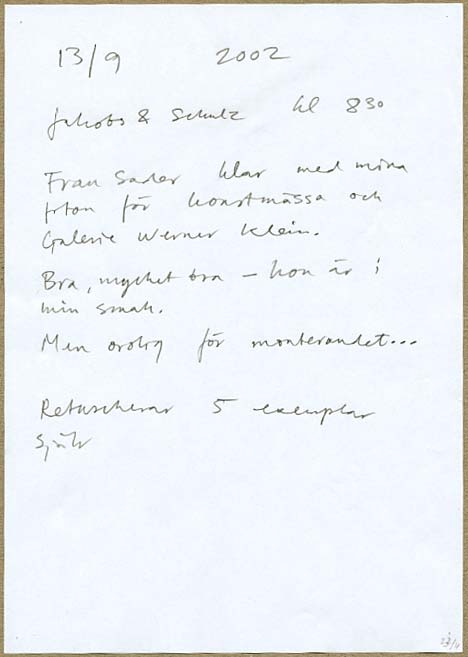 13/9 2002
Jakobs & Schulz kl 8 30
Frau Sader klar med mina
foton för konstmässa och
Galerie Werner Klein.
Bra, mycket bra – hon är i
min smak.
Men orolig för monterandet...
Retuscherar 5 exemplar
själv